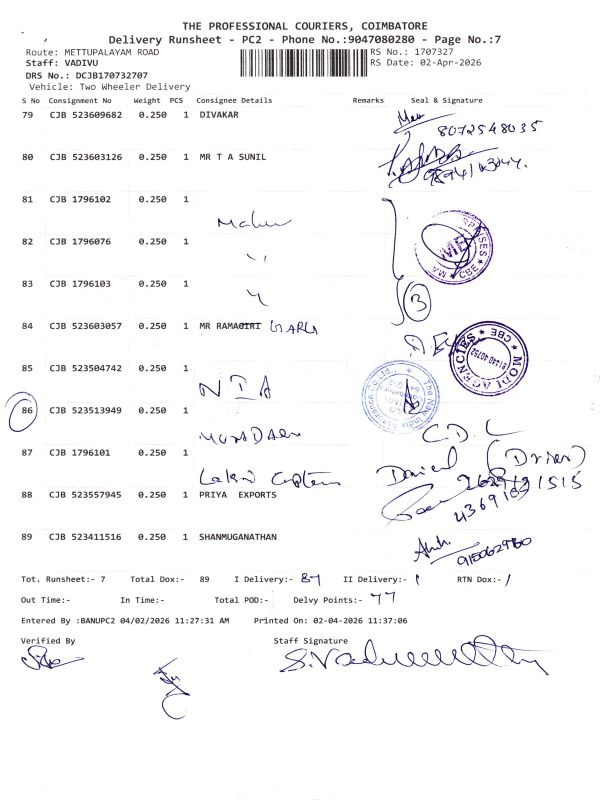 THE PROFESSIONAL COURIERS, COIMBATORE
Delivery Runsheet - PC2 - Phone No.:9047080280 - Page No.:7
Route: METTUPALAYAM ROAD RS No.: 1707327
Staff: VADIVU RS Date: 02-Apr-2026
DRS No.: DCJB170732707
Vehicle: Two Wheeler Delivery
S No Consignment No Weight PCS Consignee Details Remarks Seal & Signature
79 CJB 523609682 0.250 1 DIVAKAR
8072548035
80 CJB 523603126 0.250 1 MR T A SUNIL
81 CJB 1796102 0.250 1
82 CJB 1796076 0.250 1
83 CJB 1796103 0.250 1
3
84 CJB 523603057 0.250 1 MR RAMAGIRI
MODI AGENCIES CBE
85 CJB 523504742 0.250 1
NIA
The New India Assurance Co. Ltd.
86 CJB 523513949 0.250 1
C.D.C
87 CJB 1796101 0.250 1
Daniel (Driver)
88 CJB 523557945 0.250 1 PRIYA EXPORTS
89 CJB 523411516 0.250 1 SHANMUGANATHAN
Tot. Runsheet:- 7 Total Dox:- 89 I Delivery:- 87 II Delivery:- 1 RTN Dox:- 1
Out Time:- In Time:- Total POD:- Delvy Points:- 77
Entered By :BANUPC2 04/02/2026 11:27:31 AM Printed On: 02-04-2026 11:37:06
Verified By Staff Signature